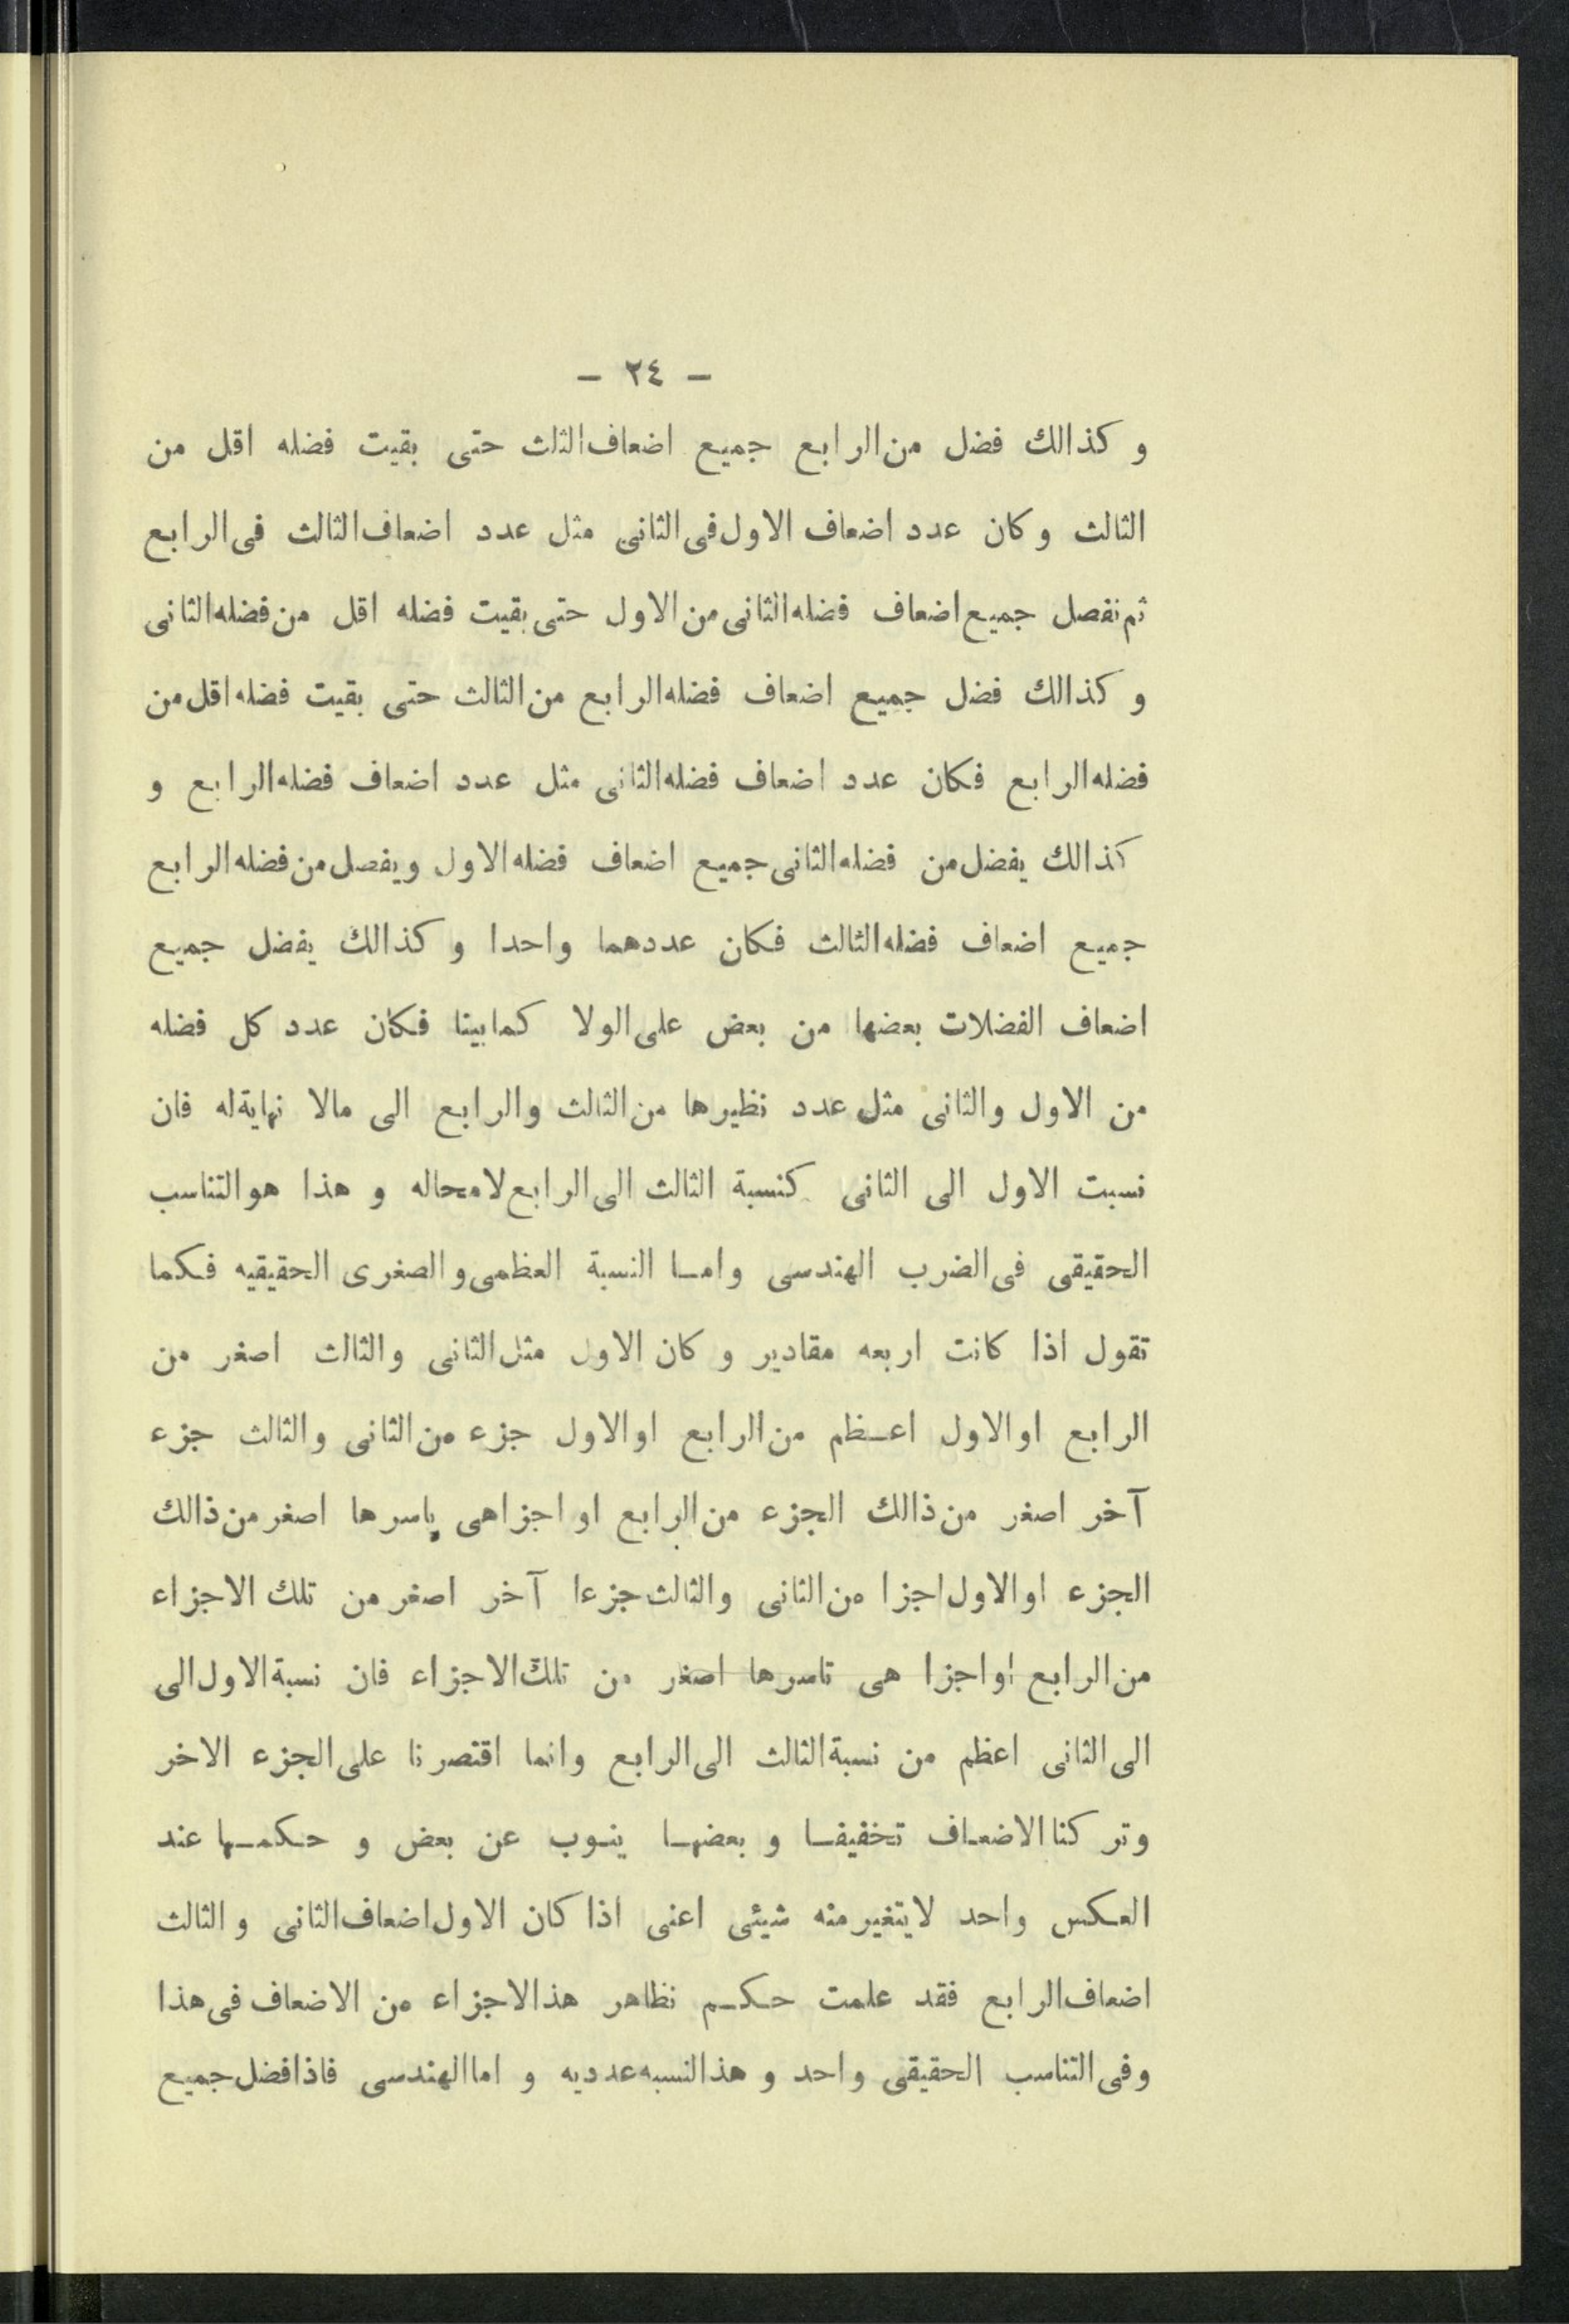 – ٢٤ –
و كذالك فضل من الرابع جميع اضعاف الثلث حتى بقيت فضله اقل من
الثالث و كان عدد اضعاف الاول فى الثانى مثل عدد اضعاف الثالث فى الرابع
ثم نفصل جميع اضعاف فضله الثانى من الاول حتى بقيت فضله اقل من فضله الثانى
و كذالك فضل جميع اضعاف فضله الرابع من الثالث حتى بقيت فضله اقل من
فضله الرابع فكان عدد اضعاف فضله الثانى مثل عدد اضعاف فضله الرابع و
كذالك يفضل من فضله الثانى جميع اضعاف فضله الاول و يفصل من فضله الرابع
جميع اضعاف فضله الثالث فكان عددهما واحدا و كذالك يفضل جميع
اضعاف الفضلات بعضها من بعض على الولا كما بينا فكان عدد كل فضله
من الاول والثانى مثل عدد نظيرها من الثالث والرابع الى مالا نهاية له فان
نسبت الاول الى الثانى كنسبة الثالث الى الرابع لامحاله و هذا هو التناسب
الحقيقى فى الضرب الهندسى وامــا النسبة العظمى و الصغرى الحقيقيه فـكما
تقول اذا كانت اربعه مقادير و كان الاول مثل الثانى والثالث اصغر من
الرابع او الاول اعــظم من الرابع او الاول جزء من الثانى والثالث جزء
آخر اصغر من ذالك الجزء من الرابع او اجزاهى باسرها اصغر من ذالك
الجزء او الاول اجزا من الثانى والثالث جزءا آخر اصغر من تلك الاجزاء
من الرابع او اجزا هى تاسرها اصغر من تلك الاجزاء فان نسبة الاول الى
الى الثانى اعظم من نسبة الثالث الى الرابع وانما اقتصرنا على الجزء الاخر
وتركنا الاضعـاف تخفيفــا و بعضهــا ينــوب عن بعض و حـكمــها عند
العـكس واحد لايتغير منه شيئى اعنى اذا كان الاول اضعاف الثانى و الثالث
اضعاف الرابع فقد علمت حــكــم نظاهر هذالاجزاء من الاضعاف فى هذا
وفى التناسب الحقيقى واحد و هذالنسبه عدديه و اما الهندسى فاذا فضل جميع